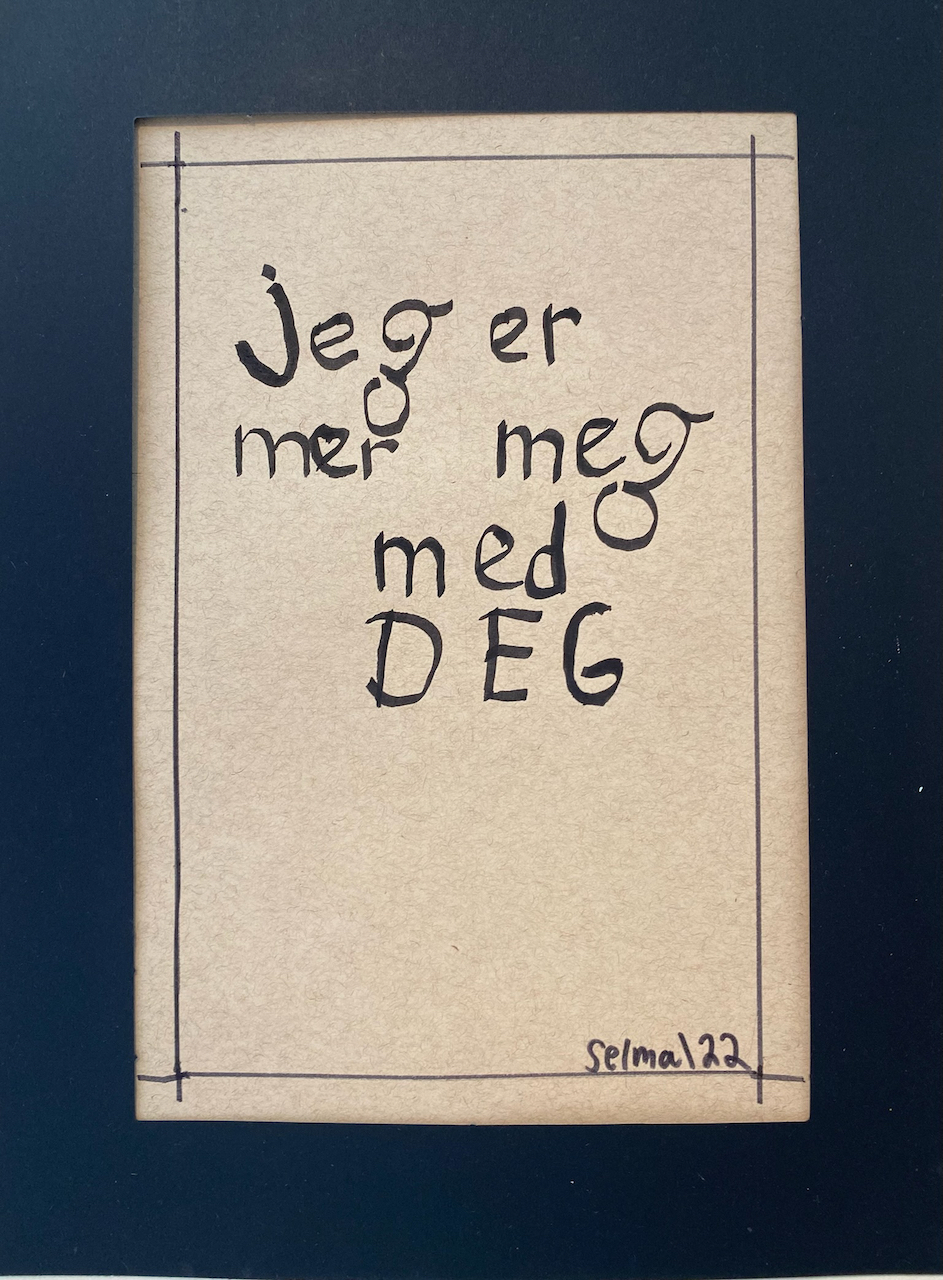 jeg er
mer meg
med
DEG
Selma\22